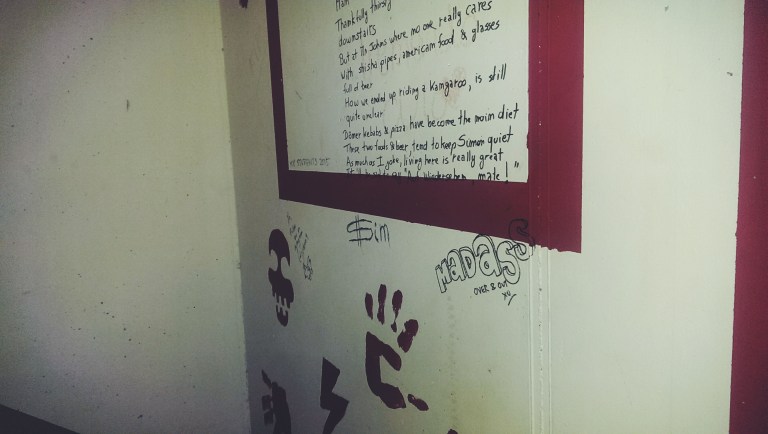 Thankfully thirsty
downstairs
But at Tin Johns where no one really cares
With shisha pipes, american food & glasses
full of beer
How we ended up riding a Kangaroo, is still
quite unclear
Döner kebabs & pizza have become the main diet
These two foods & beer, tend to keep Simon quiet
As much as I joke, living here is really great
mate!"
$im
MADASS
OVER & OUT
XO